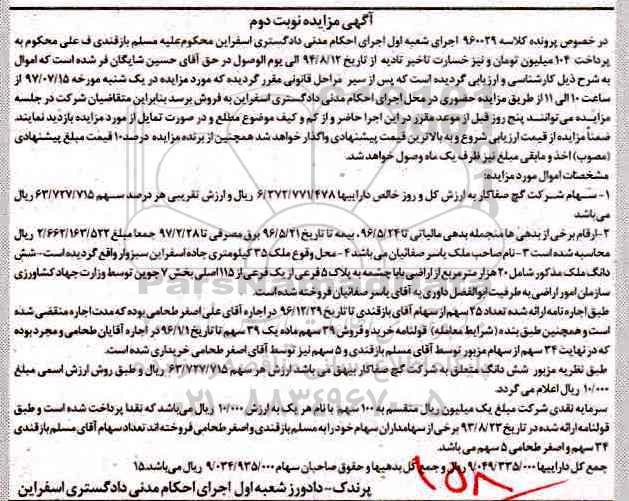 آگهی مزایده نوبت دوم
در خصوص پرونده کلاسه ۹۶۰۰۲۹ اجرای شعبه اول اجرای احکام مدنی دادگستری اسفراین محکوم‌علیه مسلم بازقندی ف علی محکوم به
پرداخت ۱۰۴ میلیون تومان و نیز خسارت تاخیر تادیه از تاریخ ۹۴/۸/۱۲ الی یوم الوصول در حق آقای حسین شایگان فر شده است که اموال
به شرح ذیل کارشناسی و ارزیابی گردیده است که پس از سیر مراحل قانونی مقرر گردیده که مورد مزایده در یک شنبه مورخه ۹۷/۰۷/۱۵ از
ساعت ۱۰ الی ۱۱ از طریق مزایده حضوری در محل اجرای احکام مدنی دادگستری اسفراین به فروش برسد بنابراین متقاضیان شرکت در جلسه
مزایده می توانند پنج روز قبل از موعد مقرر در این اجرا حاضر و از کم و کیف موضوع مطلع و در صورت تمایل از مورد مزایده بازدید نمایند.
ضمناً مزایده از قیمت ارزیابی شروع و به بالاترین قیمت پیشنهادی واگذار خواهد شد همچنین از برنده مزایده درصد۱۰ قیمت مبلغ پیشنهادی
(مصوب) اخذ و مابقی مبلغ نیز ظرف یک ماه وصول خواهد شد.
مشخصات اموال مورد مزایده:
۱- سهام شرکت گچ صفاکار به ارزش کل و روز خالص داراییها ۶/۳۷۲/۷۷۱/۴۷۸ ریال و ارزش تقریبی هر درصد سهم ۶۳/۷۲۷/۷۱۵ ریال
می باشد
۲-ارقام برخی از بدهی ها منجمله بدهی مالیاتی تا ۹۶/۵/۲۴، بیمه تا تاریخ ۹۶/۵/۲۱ برق مصرفی تا ۹۷/۲/۲۸ جمعا مبلغ ۲/۶۶۲/۱۶۳/۵۲۲ ریال
محاسبه شده است ۳-نام صاحب ملک یاسر صفائیان می باشد ۴- محل وقوع ملک ۳۵ کیلومتری جاده اسفراین سبزوار واقع گردیده است-شش
دانگ ملک مذکور شامل ۲۰ هزار متر مربع از اراضی بابا چشمه به پلاک ۵ فرعی از یک فرعی از ۱۱۵ اصلی بخش ۷ جوین توسط وزارت جهاد کشاورزی
سازمان امور اراضی به طرفیت ابوالفضل داوری به آقای یاسر صفائیان فروخته شده است.
طبق اجاره نامه ارائه شده تعداد ۲۵ سهم از سهام آقای بازقندی تا تاریخ ۹۶/۱۲/۲۹ در اجاره آقای علی اصغر طحامی بوده که مدت اجاره منقضی شده
است و همچنین طبق بنده (شرایط معامله) قولنامه خرید و فروش ۳۹ سهم ماده یک ۳۹ سهم تا تاریخ ۹۶/۱/۱ در اجاره آقایان طحامی و مجرد بوده
که در نهایت ۳۴ سهم از سهام مزبور توسط آقای مسلم بازقندی و ۵ سهم نیز توسط آقای اصغر طحامی خریداری شده است.
طبق نظریه مزبور شش دانگ متعلق به شرکت گچ صفاکار بیهق می باشد ارزش هر سهم ۶۳/۷۲۷/۷۱۵ ریال و طبق روش ارزش اسمی مبلغ
۱۰/۰۰۰ ریال اعلام می گردد.
سرمایه نقدی شرکت مبلغ یک میلیون ریال منقسم به ۱۰۰ سهم با نام هر یک به ارزش ۱۰/۰۰۰ ریال می‌باشد که نقدا پرداخت شده است و طبق
قولنامه ارائه شده در تاریخ ۹۳/۸/۲۳ برخی از سهامداران سهام خود را به مسلم بازقندی و اصغر طحامی فروخته اند تعداد سهام آقای مسلم بازقندی
۳۴ سهم و اصغر طحامی ۵ سهم می باشد.
جمع کل داراییها ۹/۰۴۹/۳۳۵/۰۰۰ ریال و جمع کل بدهیها و حقوق صاحبان سهام ۹/۰۳۴/۹۳۵/۰۰۰ ریال می‌باشد.۱۵
پرندک-دادورز شعبه اول اجرای احکام مدنی دادگستری اسفراین
۱۵۸
۰۲۱-۸۸۳۴۹۶۷۰-۵